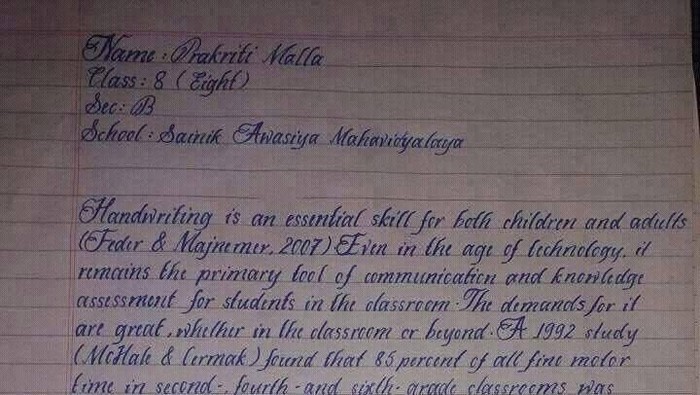 Name : Prakriti Malla
Class : 8 (Eight)
Sec : B
School : Sainik Awasiya Mahavidyalaya
Handwriting is an essential skill for both children and adults
(Feder & Majnemer, 2007) Even in the age of technology, it
remains the primary tool of communication and knowledge
assessment for students in the classroom. The demands for it
are great, whether in the classroom or beyond. A 1992 study
(McHale & Cermak) found that 85 percent of all fine motor
time in second-, fourth-and sixth-grade classrooms was